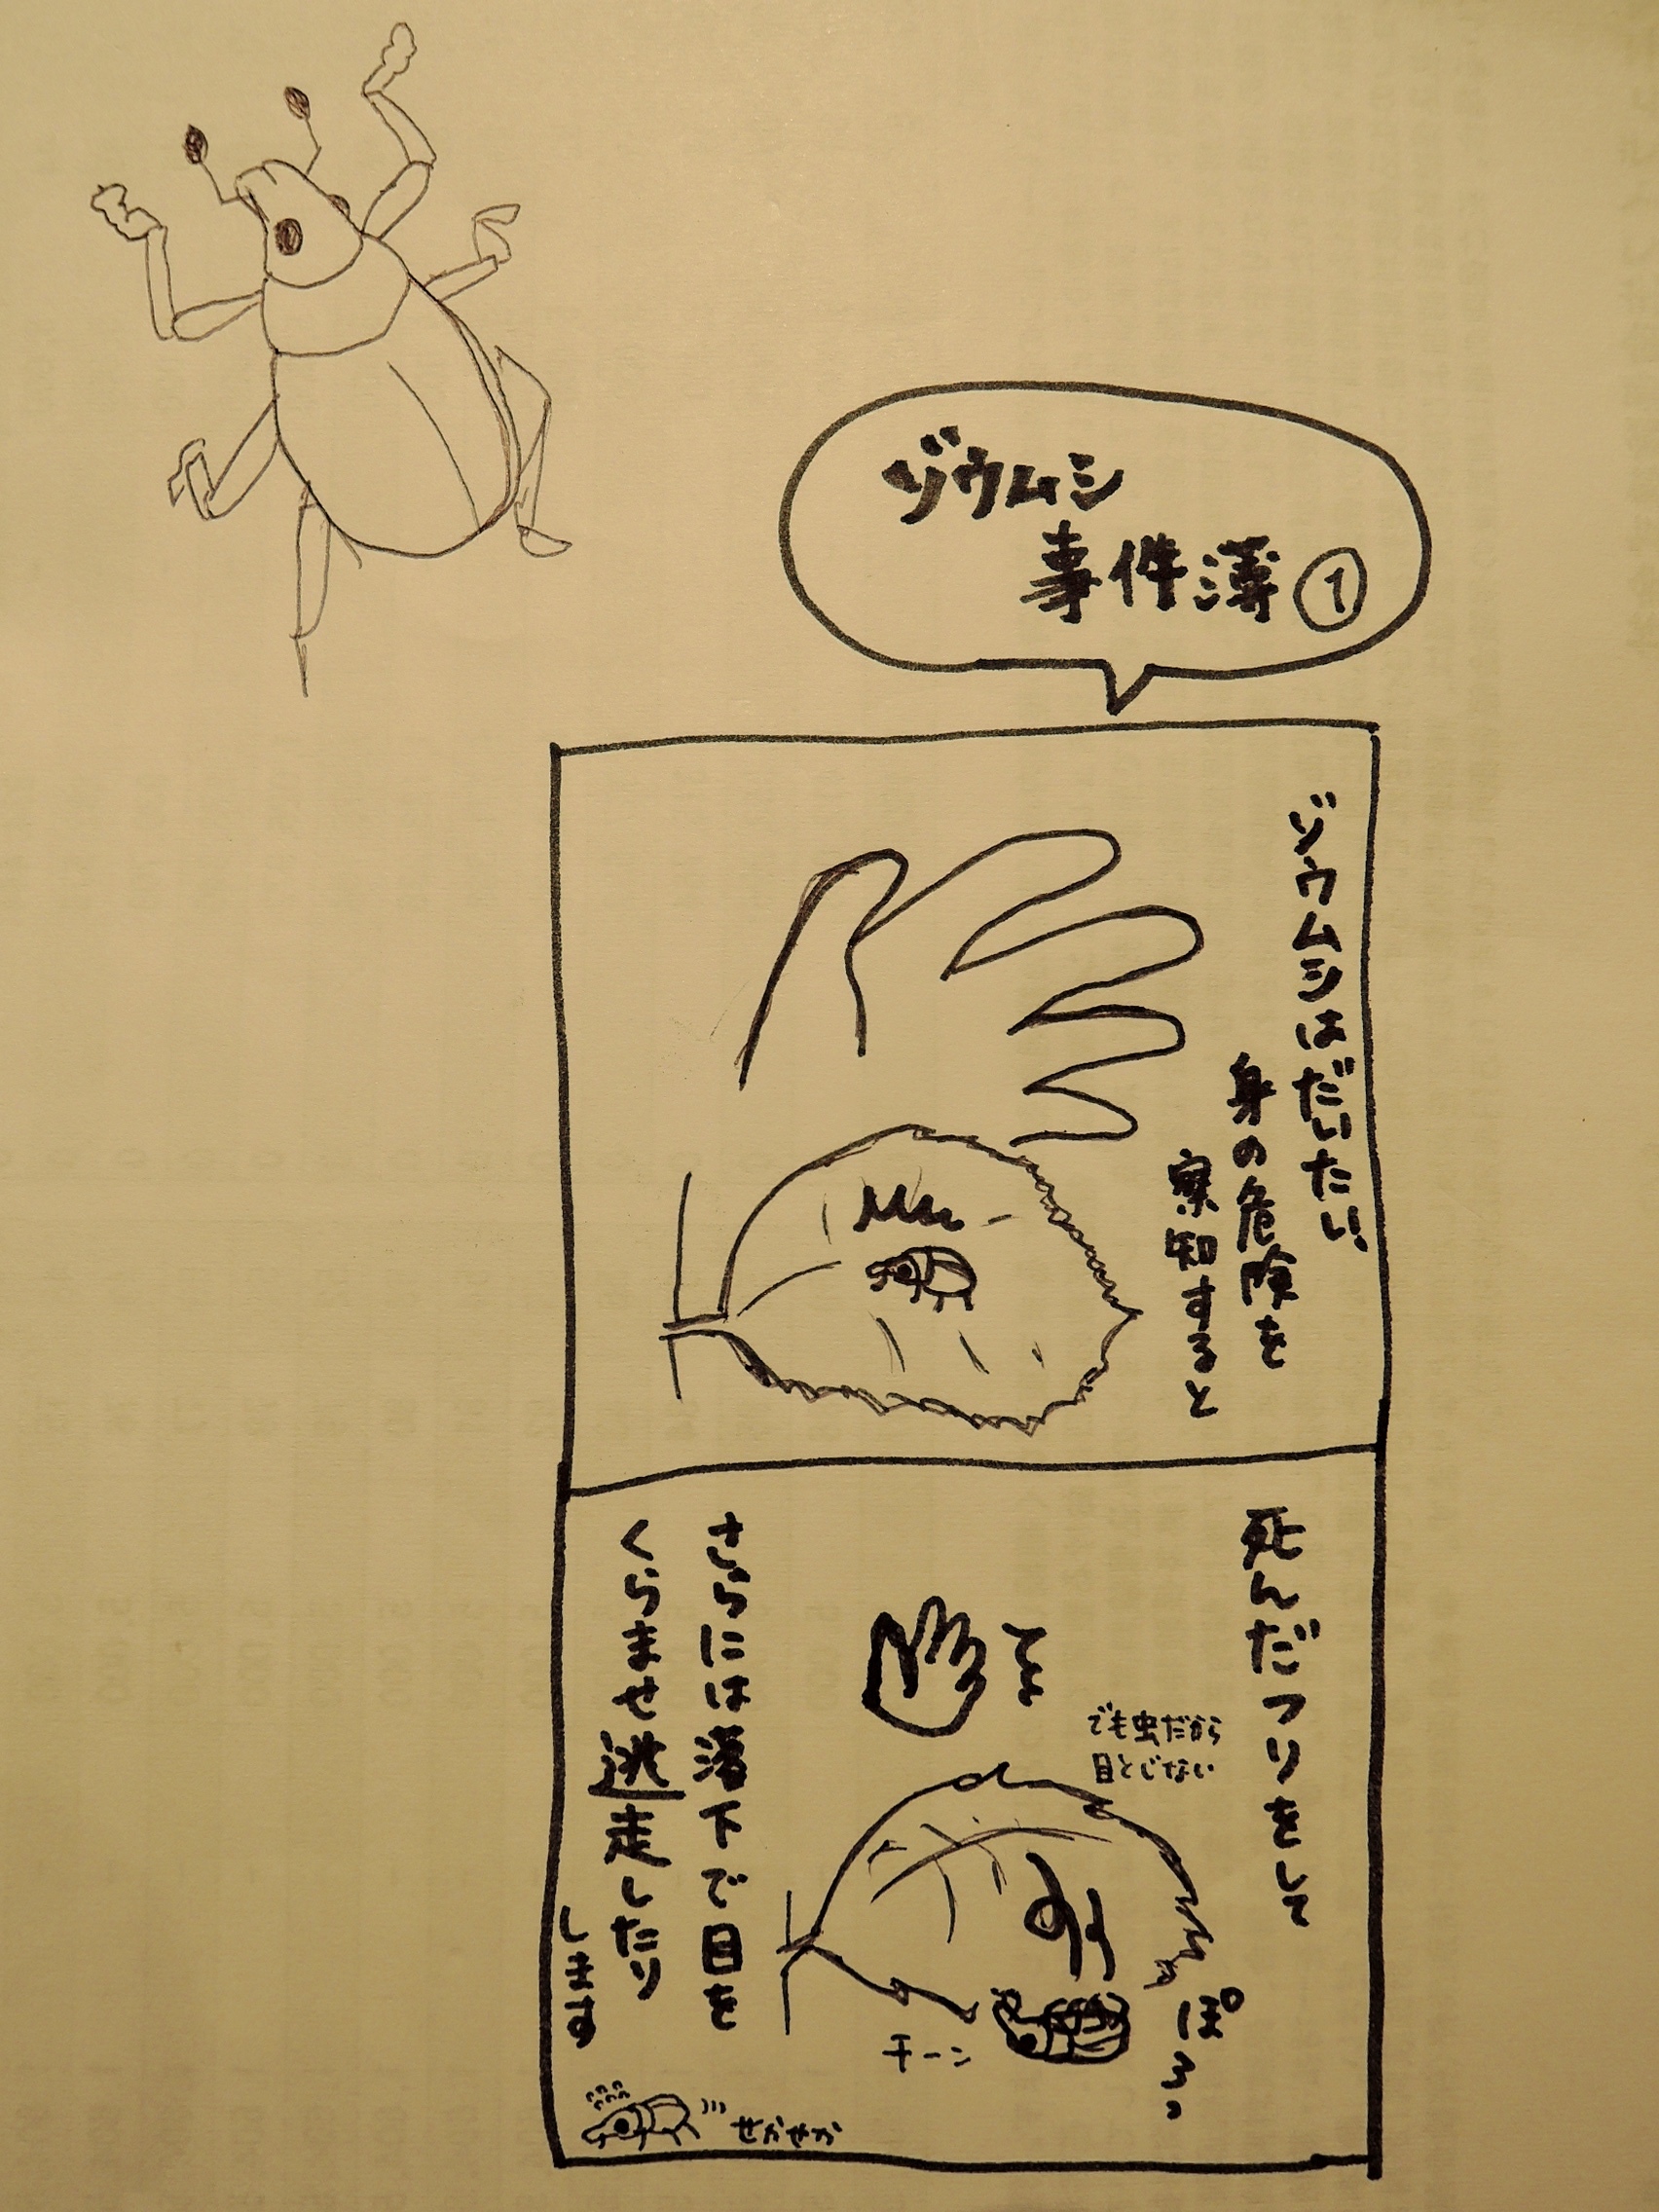 ゾウムシ
事件簿①
ゾウムシはだいたい、
身の危険を
察知すると
死んだフリをして
でも虫だから
目とじない
ぽろっ
チーン
さらには落下で目を
くらませ逃走したり
します
せかせか